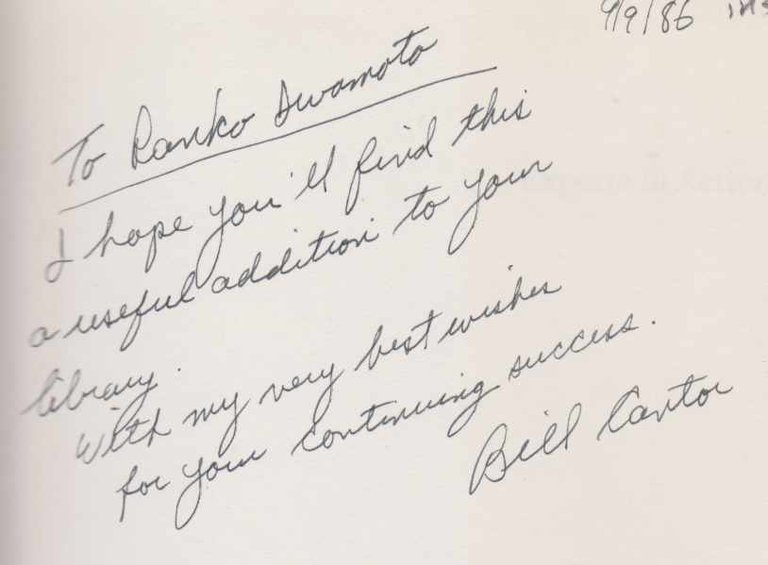 9/9/86
To Ranko Iwamoto
I hope you'll find this
a useful addition to your
library.
With my very best wishes
for your continuing success.
Bill Cantor